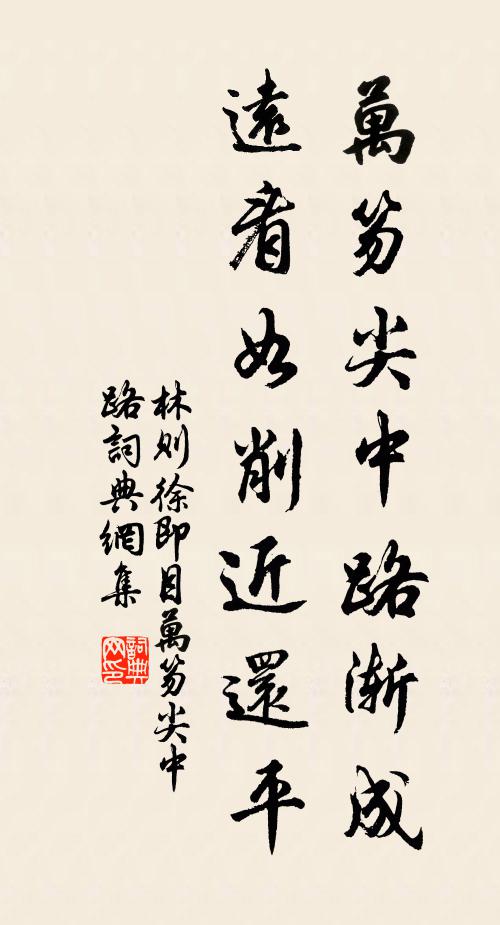 萬笏尖中路漸成
遠看如削近還平
林則徐即目萬笏尖中
路詞典網集
詞典
网印